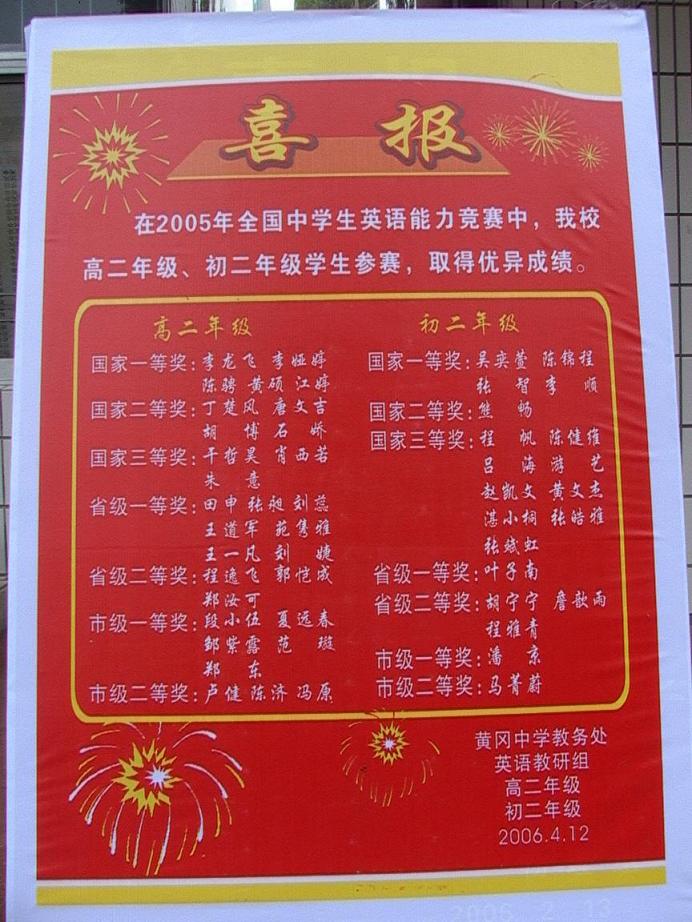 喜报
在2005年全国中学生英语能力竞赛中，我校
高二年级、初二年级学生参赛，取得优异成绩。
高二年级
国家一等奖：李龙飞 李娅婷
陈骋 黄硕 江婷
国家二等奖：丁楚风 唐文吉
胡博 石娇
国家三等奖：干哲昊 肖西若
朱意
省级一等奖：田申 张昶 刘蕊
王道军 苑隽雅
王一凡 刘婕
省级二等奖：程逸飞 郭恺成
郑汝可
市级一等奖：段小伍 夏远春
邹紫露 范璇
郑东
市级二等奖：卢健 陈济 冯原
初二年级
国家一等奖：吴奕萱 陈锦程
张智 李顺
国家二等奖：熊畅
国家三等奖：程帆 陈健维
吕海 游艺
赵凯文 黄文杰
湛小桐 张皓雅
张斌虹
省级一等奖：叶子南
省级二等奖：胡宁宁 詹歆雨
程雅青
市级一等奖：潘京
市级二等奖：马菁蔚
黄冈中学教务处
英语教研组
高二年级
初二年级
2006.4.12